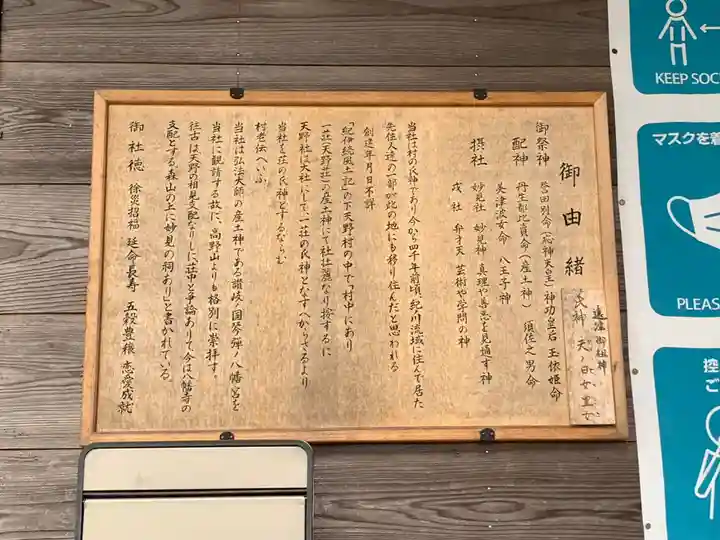 御由緒
遠津御祖神
氏神 天ノ日女皇女
御祭神 誉田別命(応神天皇)神功皇后 玉依姫命
配神 丹生都比賣命(産土神) 須佐之男命
美津波女命 八王子神
摂社 妙見社 妙見神 真理や善悪を見通す神
戎社 弁才天 芸術や学問の神
当社は村の氏神であり今から四千年前頃、紀ノ川流域に住んで居た
先住人達の一部が此の地にも移り住んだと思われる
創建年月日不詳
「紀伊続風土記」の下天野村の中で「村中にあり
一荘(天野荘)の産土神にて社壮麗なり按するに
天野社は大社にして、一荘の氏神となすへからさるより
当社を荘の氏神とするならむ
村老伝へいふ
当社は弘法大師の産土神である讃岐ノ国琴弾ノ八幡宮を
当社に勧請する故に、高野山よりも格別に崇拝す
往古は天野の相見支配なりしに、荘中と争論ありて今は八幡寺の
支配とする、森山の上に妙見の祠あり」と書かれている。
御社徳 除災招福 延命長寿 五穀豊穣 恋愛成就
KEEP SOC
マスクを着
PLEAS
控
ご